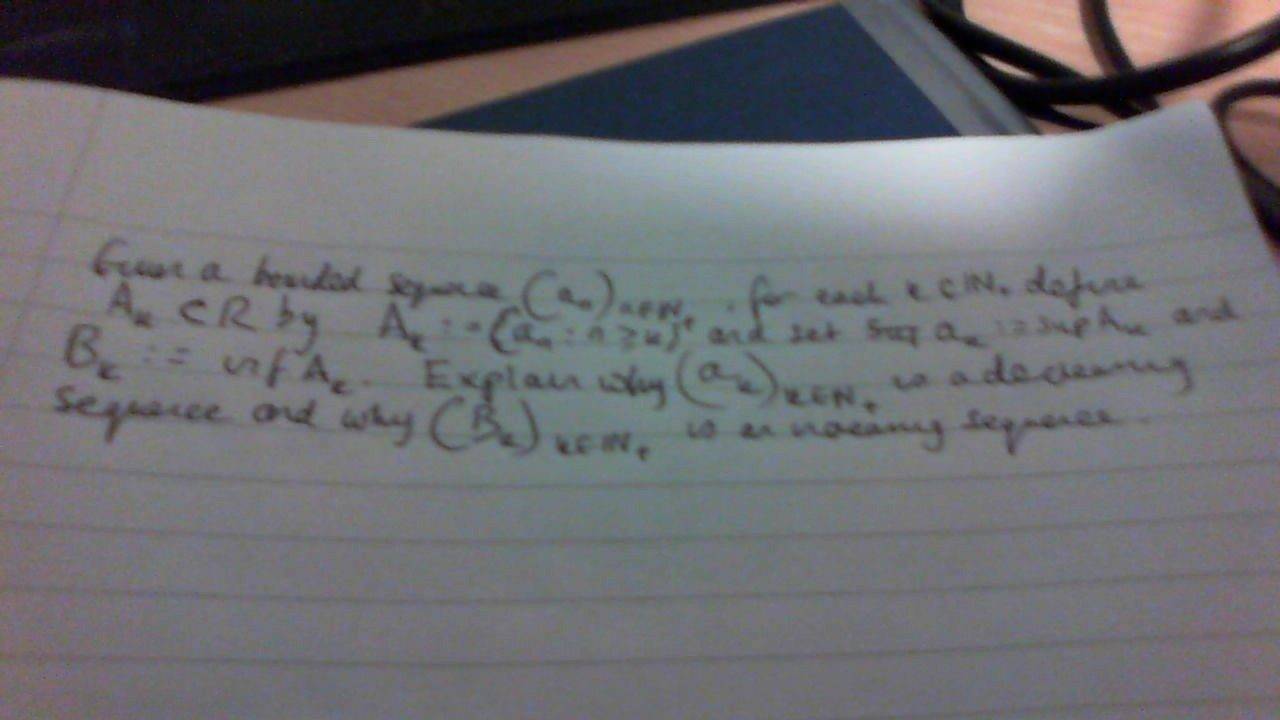 Given a bounded sequence (aₙ)ₙ∈ℕ₊. for each k ∈ ℕ₊ define
Aₖ ⊂ R by Aₖ := {aₙ : n ≥ k} and set aₖ := sup Aₖ and
Bₖ := inf Aₖ. Explain why (aₖ)ₖ∈ℕ₊ is a decreasing
sequence and why (Bₖ)ₖ∈ℕ₊ is an increasing sequence.